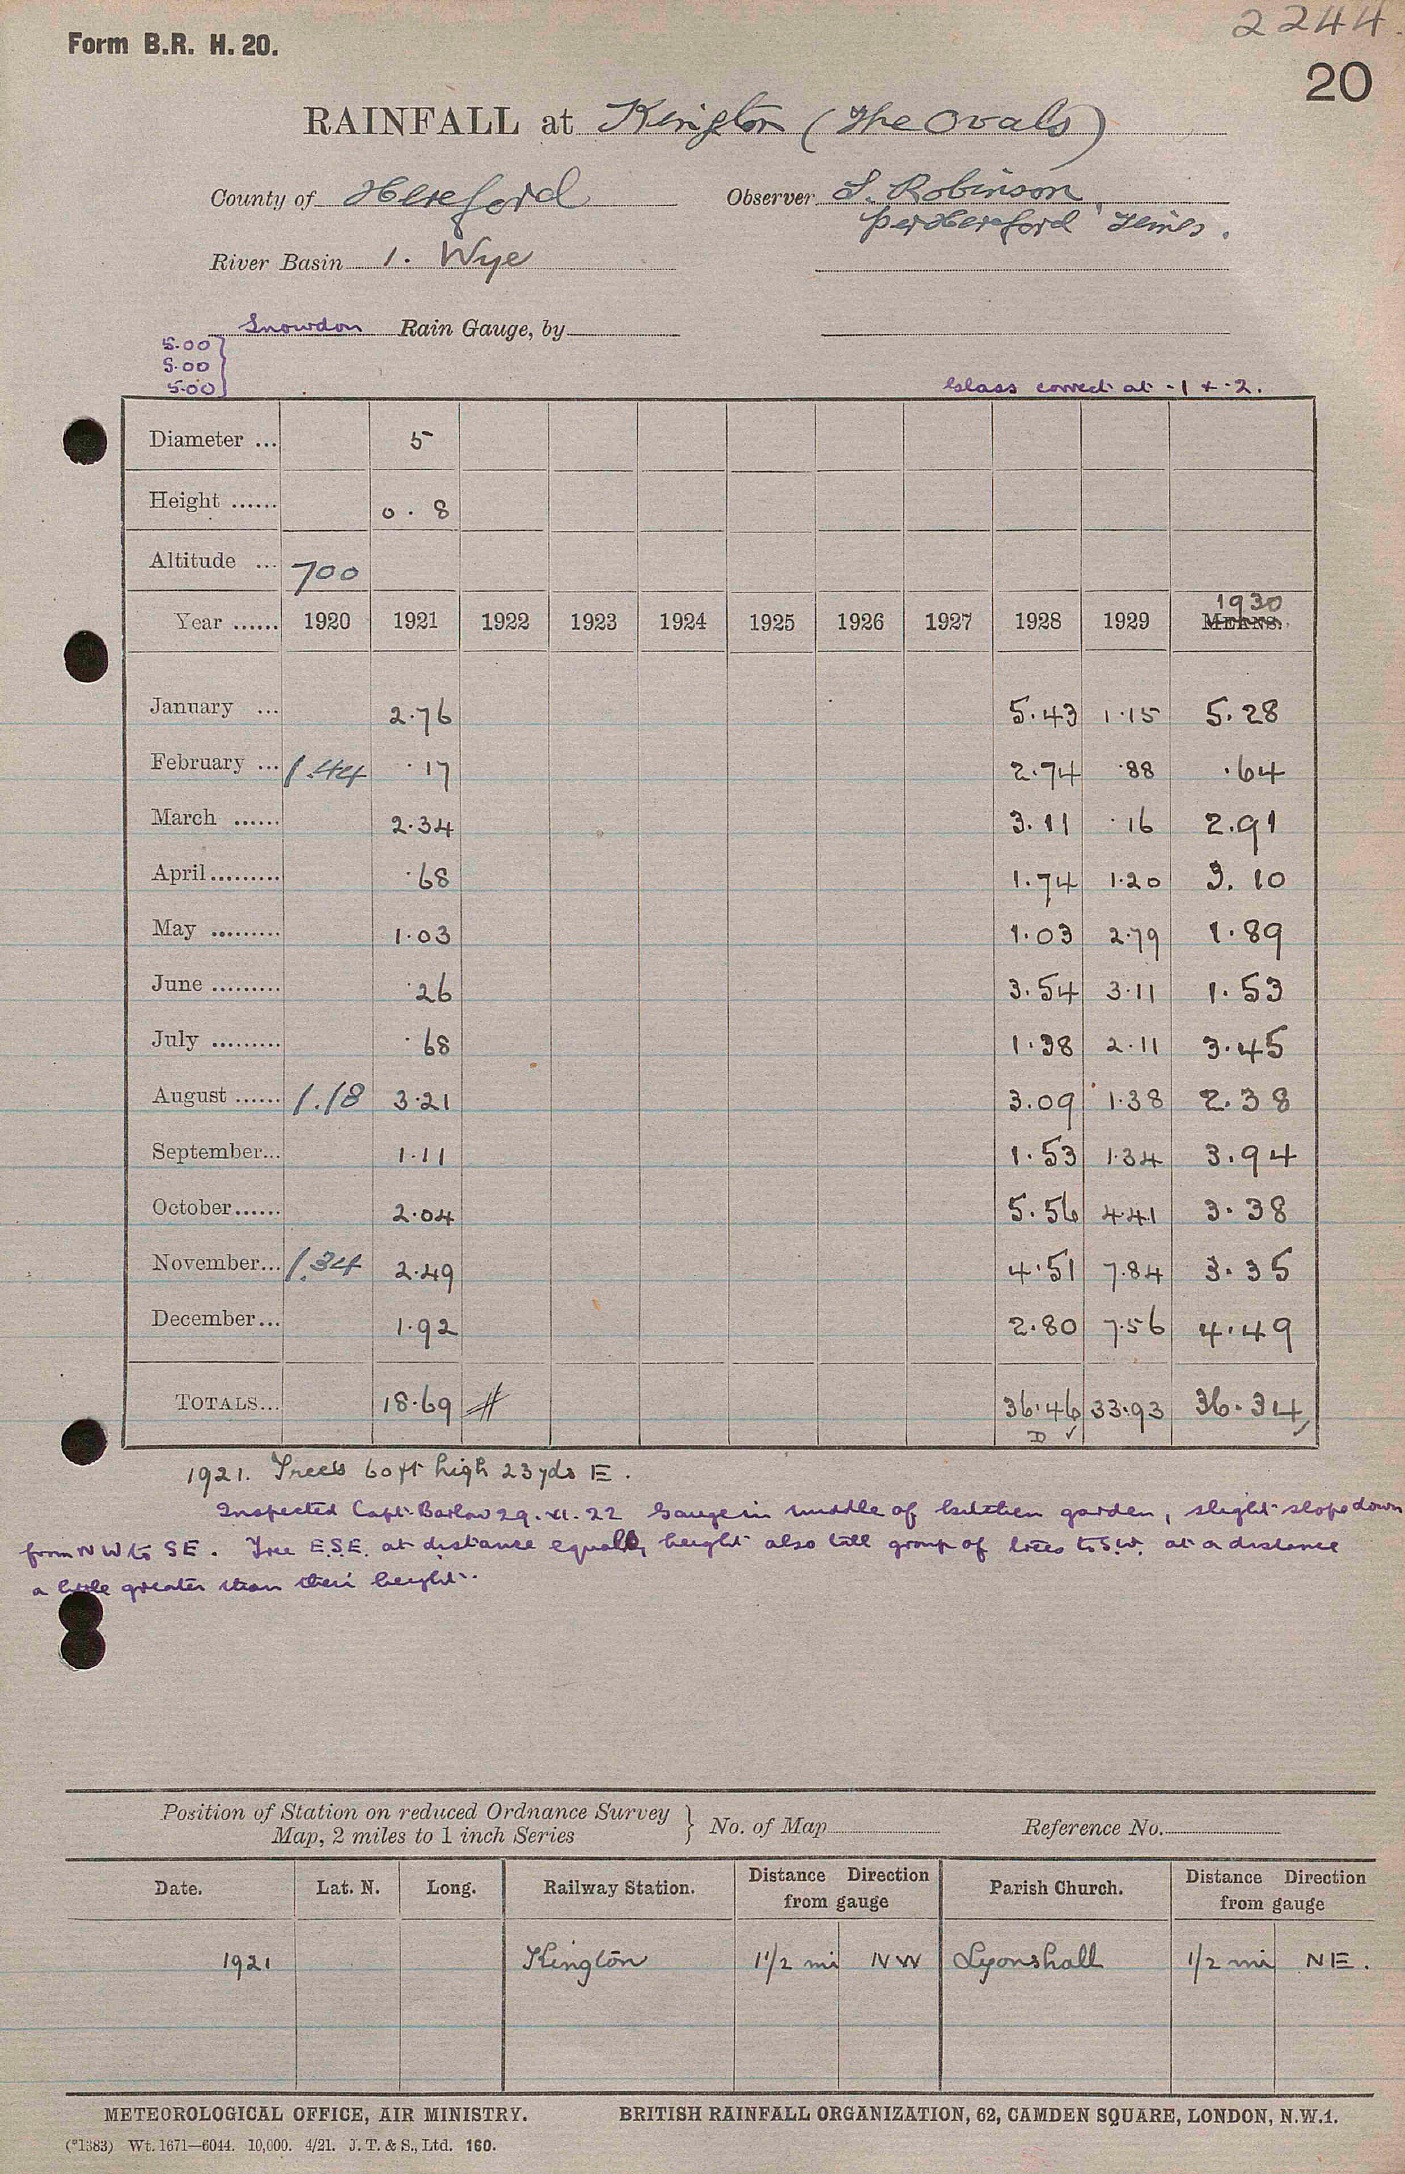 2244.
Form B.R. H. 20.
20
RAINFALL at Kington (The Ovals)
County of Hereford Observer S. Robinson,
per Hereford Times.
River Basin 1. Wye
Snowdon Rain Gauge, by
5.00
5.00
5.00
Glass correct at .1 + .2.
Diameter ... 5
Height ...... 0 . 8
Altitude ... 700
Year ...... 1920 1921 1922 1923 1924 1925 1926 1927 1928 1929 1930 MEANS.
January ... 2.76 5.43 1.15 5.28
February ... 1.44 .17 2.74 .88 .64
March ...... 2.34 3.11 .16 2.91
April......... .68 1.74 1.20 3.10
May ......... 1.03 1.03 2.79 1.89
June ......... .26 3.54 3.11 1.53
July ......... .68 1.38 2.11 3.45
August ...... 1.18 3.21 3.09 1.38 2.38
September... 1.11 1.53 1.34 3.94
October...... 2.04 5.56 4.41 3.38
November... 1.34 2.49 4.51 7.84 3.35
December... 1.92 2.80 7.56 4.49
TOTALS... 18.69 # 36.46 33.93 36.34
D ✓
1921. Trees 60 ft high 23 yds E.
Inspected Capt. Barlow 29.XI.22 Gauge in middle of kitchen garden, slight slope down
from NW to SE. Tree E.S.E. at distance equally height also tall group of trees to S.W. at a distance
a little greater than their height.
Position of Station on reduced Ordnance Survey
Map, 2 miles to 1 inch Series } No. of Map Reference No.
Date. Lat. N. Long. Railway Station. Distance Direction from gauge Parish Church. Distance Direction from gauge
1921 Kington 1 1/2 mi NW Lyonshall 1/2 mi NE.
METEOROLOGICAL OFFICE, AIR MINISTRY. BRITISH RAINFALL ORGANIZATION, 62, CAMDEN SQUARE, LONDON, N.W.1.
(*1383) Wt. 1671—6044. 10,000. 4/21. J. T. & S., Ltd. 160.